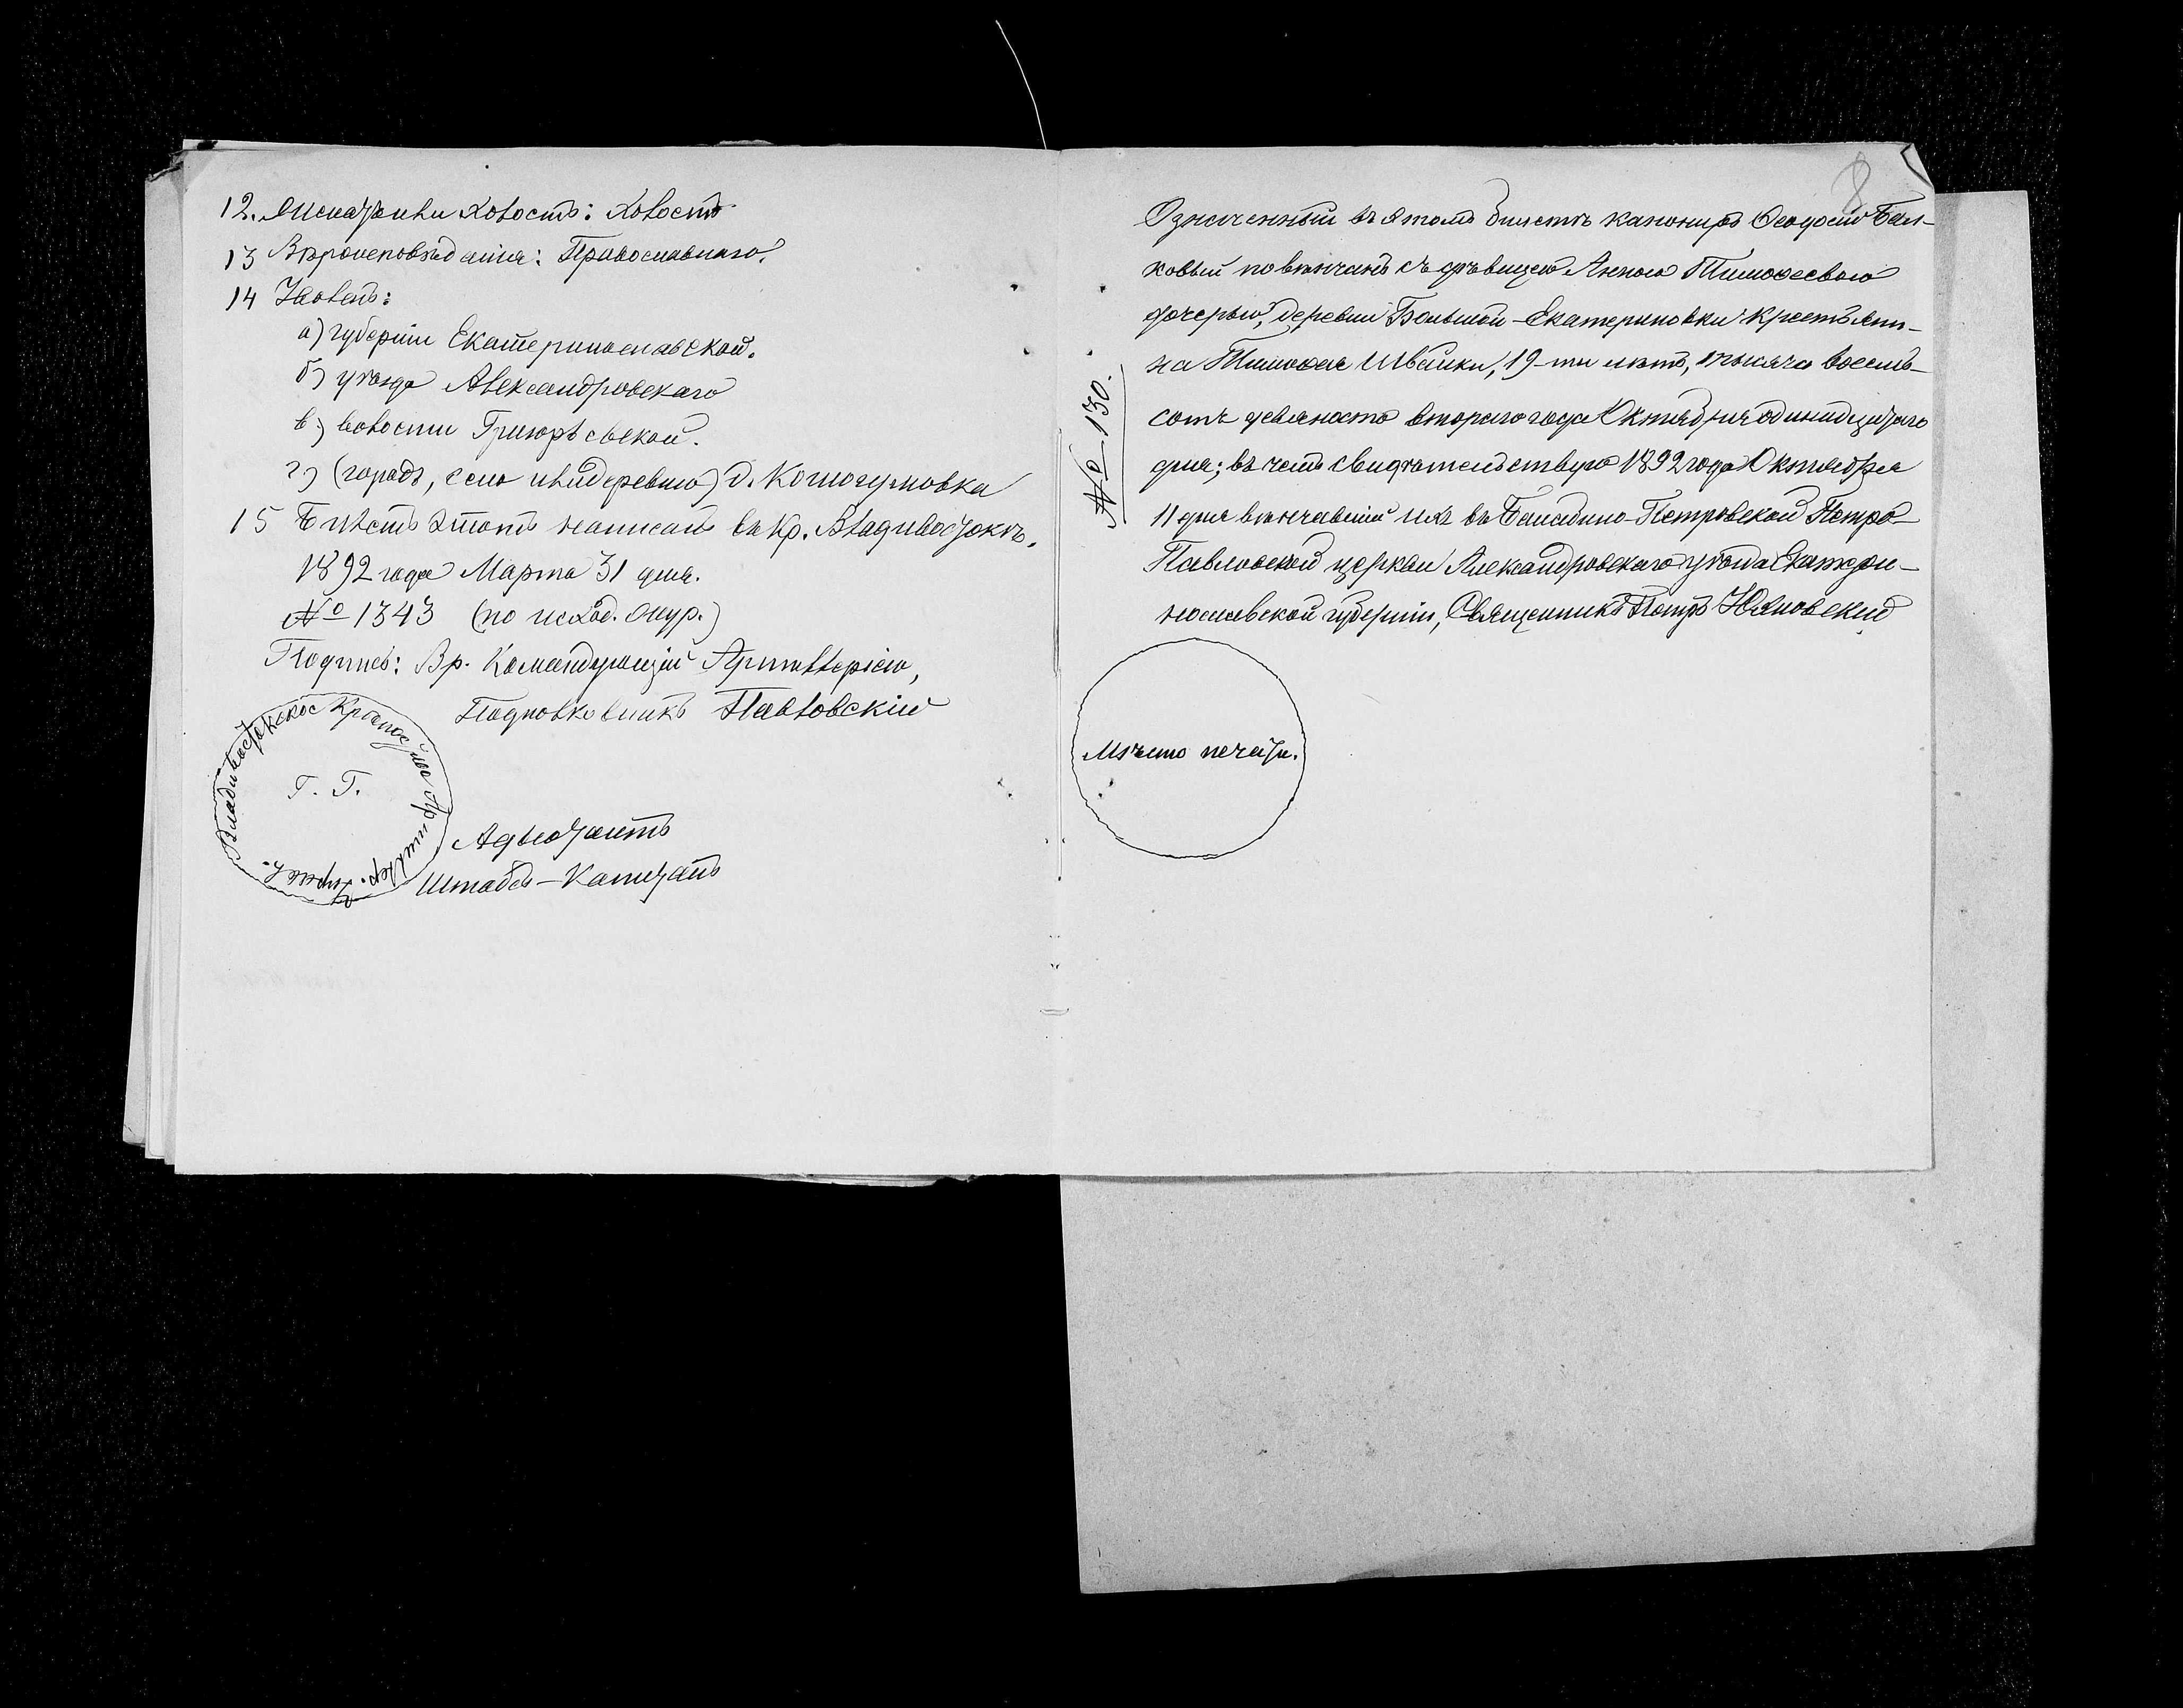 12. Женатъ или холостъ: холостъ
13 Вѣроисповѣданія: Православнаго.
14 Уволенъ:
а) губерніи Екатеринославской.
б) уѣзда Александровскаго
в) волости Григорьевской.
г) (городъ, село или деревню) д.
15 Билетъ этотъ написанъ въ Кр. Владивостокѣ.
1892 года Марта 31 дня.
№ 1343 (по исход. жур.)
Подписъ: Вр. Командующій Артиллеріею,
Подполковникъ Павловскій
Владивостокское Крѣпостное Артиллер. Управл.
Г. Г.
Адъютантъ
Штабсъ-Капитанъ
8
Означенный въ этомъ билетѣ канониръ Ѳеодосій Бал-
ковый повѣнчанъ съ дѣвицею Анною Тимоѳеевою
дочерью, деревни Большой-Екатериновки крестьяни-
на Тимоѳея Швайки, 19-ти лѣтъ, тысяча восемь-
сотъ девяносто второго года Октября одинадцатаго
дня; въ чемъ свидѣтельствую 1892 года Октября
11 дня вѣнчавшій ихъ въ Балабино-Петровской Петро-
Павловской церкви Александровскаго уѣзда Екатери-
нославской губерніи, Священникъ Петръ Юлновский
№ 130.
Мѣсто печати.